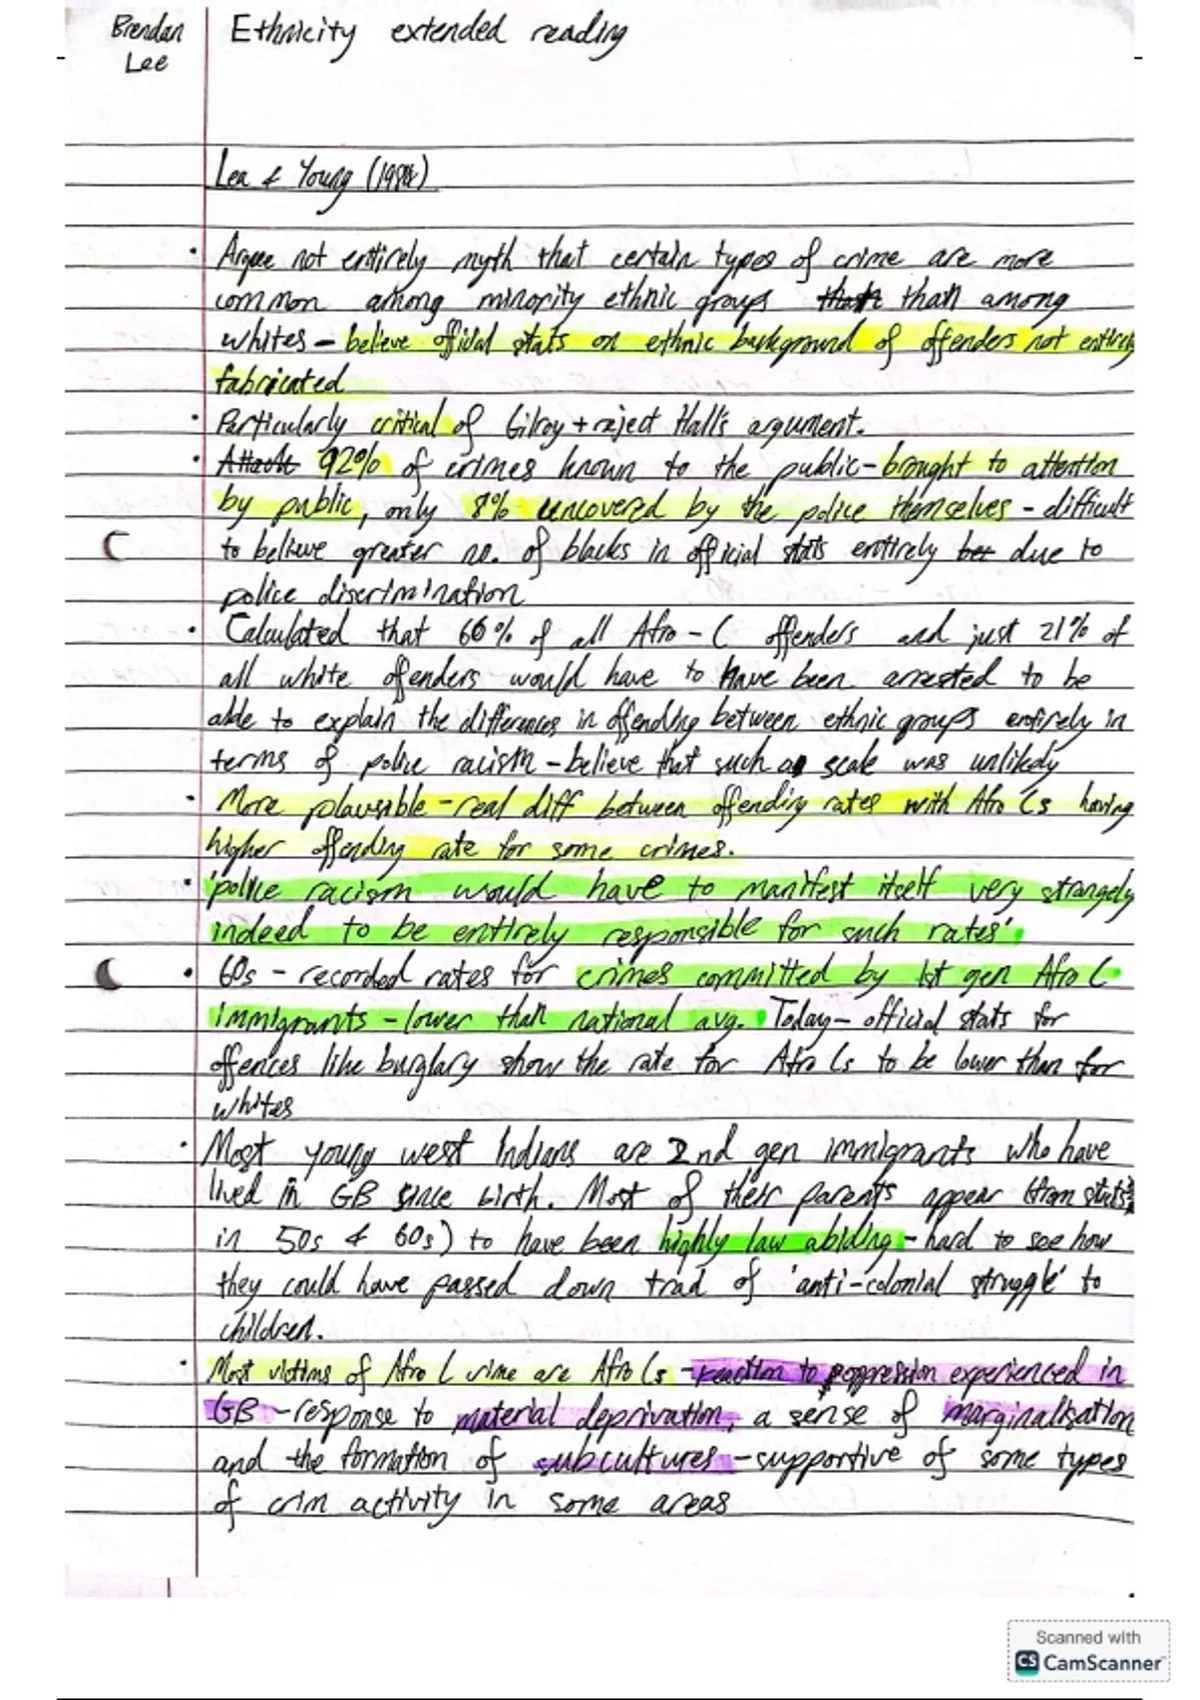 Brendan
Lee
Ethnicity extended reading
Lea & Young (1984)
• Argue not entirely myth that certain types of crime are more
common among minority ethnic groups than among
whites – believe official stats on ethnic background of offenders not entirely
fabricated
• Particularly critical of Gilroy + reject Hall's argument.
• 92% of crimes known to the public – brought to attention
by public, only 8% uncovered by the police themselves – difficult
to believe greater no. of blacks in official stats entirely due to
police discrimination
• Calculated that 66% of all Afro-C offenders and just 21% of
all white offenders would have to have been arrested to be
able to explain the differences in offending between ethnic groups entirely in
terms of police racism – believe that such a scale was unlikely
• More plausible – real diff between offending rates with Afro Cs having
higher offending rate for some crimes.
• 'police racism would have to manifest itself very strangely
indeed to be entirely responsible for such rates'.
• 60s – recorded rates for crimes committed by 1st gen Afro C
immigrants – lower than national avg. Today – official stats for
offences like burglary show the rate for Afro Cs to be lower than for
whites
• Most young west Indians are 2nd gen immigrants who have
lived in GB since birth. Most of their parents appear (from stats
in 50s & 60s) to have been highly law abiding – hard to see how
they could have passed down trad of 'anti-colonial struggle' to
children.
• Most victims of Afro C crime are Afro Cs – reaction to oppression experienced in
GB – response to material deprivation, a sense of marginalisation
and the formation of subcultures – supportive of some types
of crim activity in some areas
Scanned with
CS CamScanner